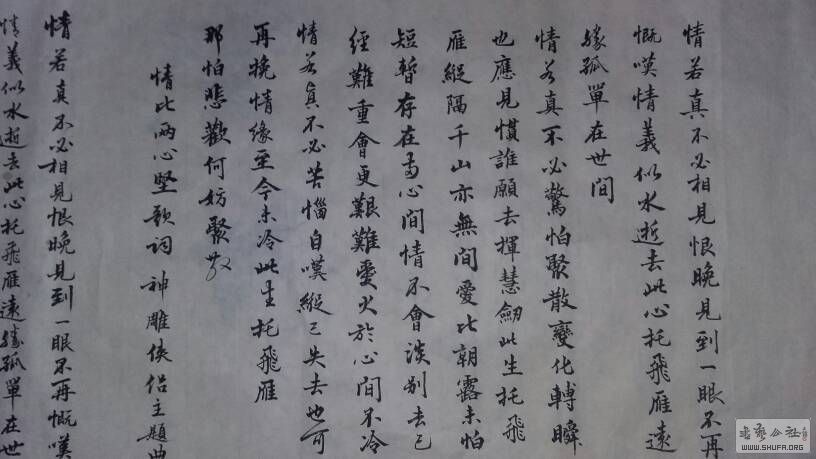 情若真不必相見恨晚見到一眼不再
慨嘆情義似水逝去此心托飛雁遠
勝孤單在世間
情若真不必驚怕聚散變化轉瞬
也應見慣誰願去揮慧劒此生托飛
雁縱隔千山亦無間愛比朝露未怕
短暫存在於心間情不會淡别去已
經難重會更艱難愛火於心間不冷
情若真不必苦惱自嘆縱已失去也可
再挽情緣至今未冷此生托飛雁
那怕悲歡何妨聚散
情比兩心堅歌詞神雕俠侣主題曲
情若真不必相見恨晚見到一眼不再慨嘆
情義似水逝去此心托飛雁遠勝孤單在世
書藝公社
WWW.SHUFA.ORG